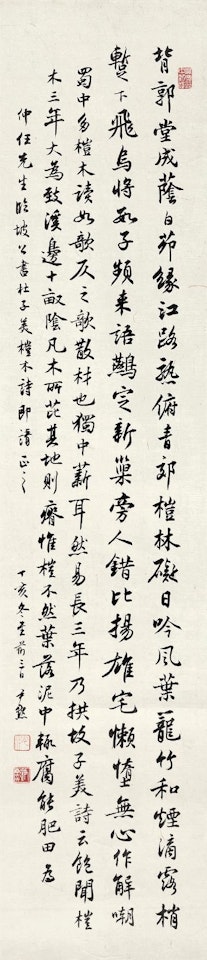 背郭堂成蔭白茆緣江路熟俯青郊榿林礙日吟風葉籠竹和煙滴露梢
暫下飛烏將數子頻來語鷰定新巢旁人錯比揚雄宅懶惰無心作解嘲
蜀中多榿木讀如歌仄之歌散材也獨中薪耳然易長三年乃拱故子美詩云飽聞榿
木三年大為致溪邊十畝陰凡木所芘其地則瘠惟榿不然葉落泥中輒腐能肥田為
仲任先生臨坡公書杜子美榿木詩即請正之
丁亥冬至前三日尹默